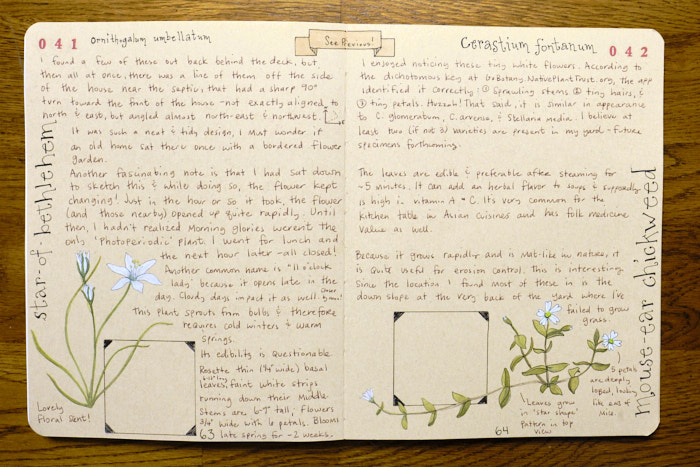 041 Ornithogalum umbellatum
I found a few of these out back behind the deck, but,
then all at once, there was a line of them off the side
of the house near the septic, that had a sharp 90°
turn toward the front of the house - not exactly aligned to
north & east, but angled almost north-east & northwest.
It was such a neat & tidy design, I must wonder if
an old home sat there once with a bordered flower
garden.
Another fascinating note is that I had sat down
to sketch this & while doing so, the flower kept
changing! Just in the hour or so it took, the flower
(and those nearby) opened up quite rapidly. Until
then, I hadn't realized Morning glories werent the
only 'Photoperiodic' plant. I went for lunch and
the next hour later - all closed!
Another common name is "11 o'clock
lady" because it opens late in the
day. Cloudy days impact it as well.
This plant sprouts from bulbs & therefore
requires cold winters & warm
springs.
Its edibility is questionable.
Rosette thin (1/4" wide) basal
leaves, faint white strips
running down their middle.
Stems are 6-9" tall, flowers
3/4" wide with 6 petals. Blooms
late spring for ~2 weeks.
star-of-bethlehem
Lovely
Floral Scent!
63
See Previous!
Cerastium fontanum 042
I enjoyed noticing these tiny white flowers. According to
the dichotomous key at GoBotany.NativePlantTrust.org, the app
identified it correctly: ① Sprawling stems ② tiny hairs, &
③ tiny petals. Huzzah! That said, it is similar in appearance
to C. glomeratum, C. arvense, & Stellaria media. I believe at
least two (if not 3) varieties are present in my yard - future
specimens forthcoming.
The leaves are edible & preferable after steaming for
~5 minutes. It can add an herbal flavor to soups & supposedly
is high in vitamin A & C. Its very common for the
kitchen table in Asian cuisines and has folk medicine
value as well.
Because it grows rapidly and is mat-like in nature, it
is quite useful for erosion control. This is interesting,
since the location I found most of these in is the
down slope at the very back of the yard where I've
failed to grow
grass.
mouse-ear chickweed
5 petals
are deeply
lobed, looking
like ears of
mice.
Leaves grow
in "star shape"
pattern in top
view
64